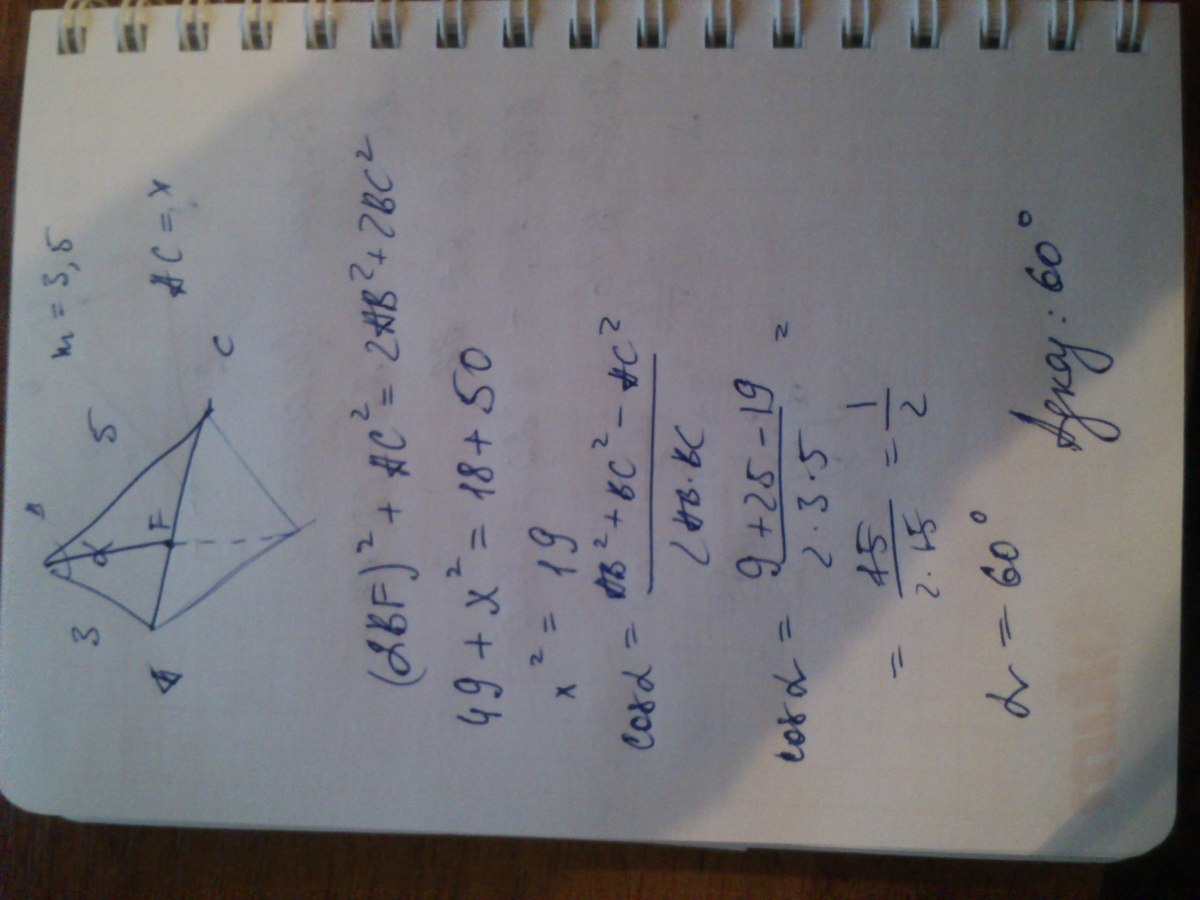 m = 3,5
B
3
5
α
AC = x
A
F
C
(2BF)² + AC² = 2AB² + 2BC²
49 + x² = 18 + 50
x² = 19
cos α = AB² + BC² − AC² / 2AB·BC
cos α = 9 + 25 − 19 / 2·3·5 =
= 15 / 2·15 = 1/2
α = 60°
Адказ: 60°